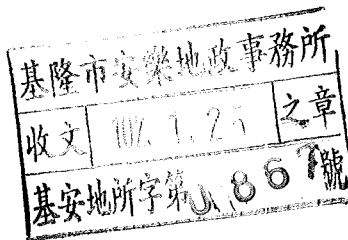 基隆市安樂地政事務所
收文 102. 1. 25 之章
基安地所字第0867號